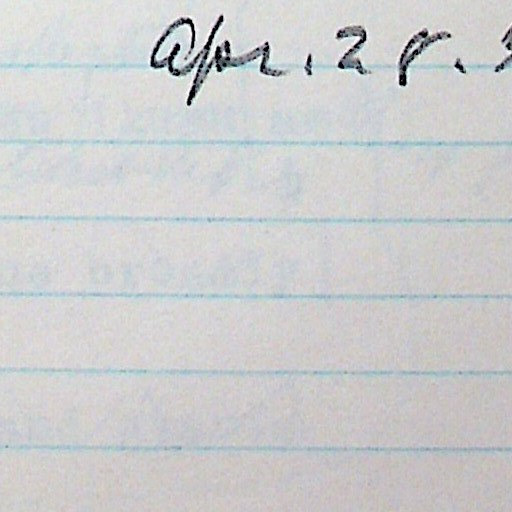 Apr. 28.